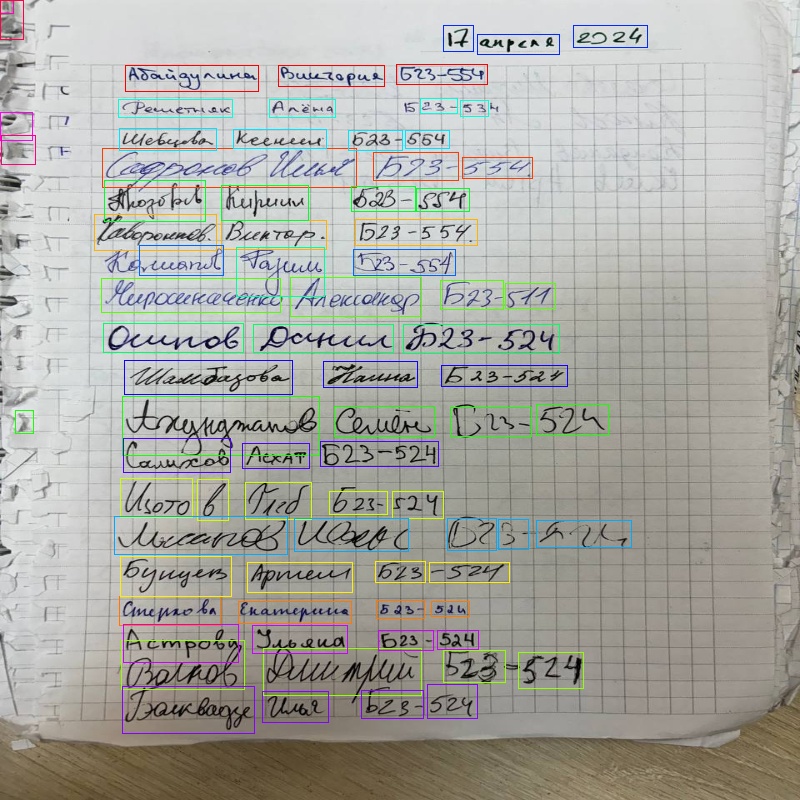 17 апреля 2024
Абайдулина Виктория Б23-554
Решетняк Алёна Б23-534
Шевцова Ксения Б23-554
Сафронов Илья Б23-554.
Кирилл Б23-554
Виктор. Б23-554.
Б23-554
Мирошниченко Александр Б23-511
Осипов Данил Б23-524
Шамбазова Б23-524
Ахунджанов Семён Б23-524
Салихов Асхат Б23-524
Изотов Глеб Б23-524
Б23-524
Бунцев Артем Б23-524
Стеркова Екатерина Б23-524
Астрова Ульяна Б23-524
Волков Дмитрий Б23-524
Илья Б23-524